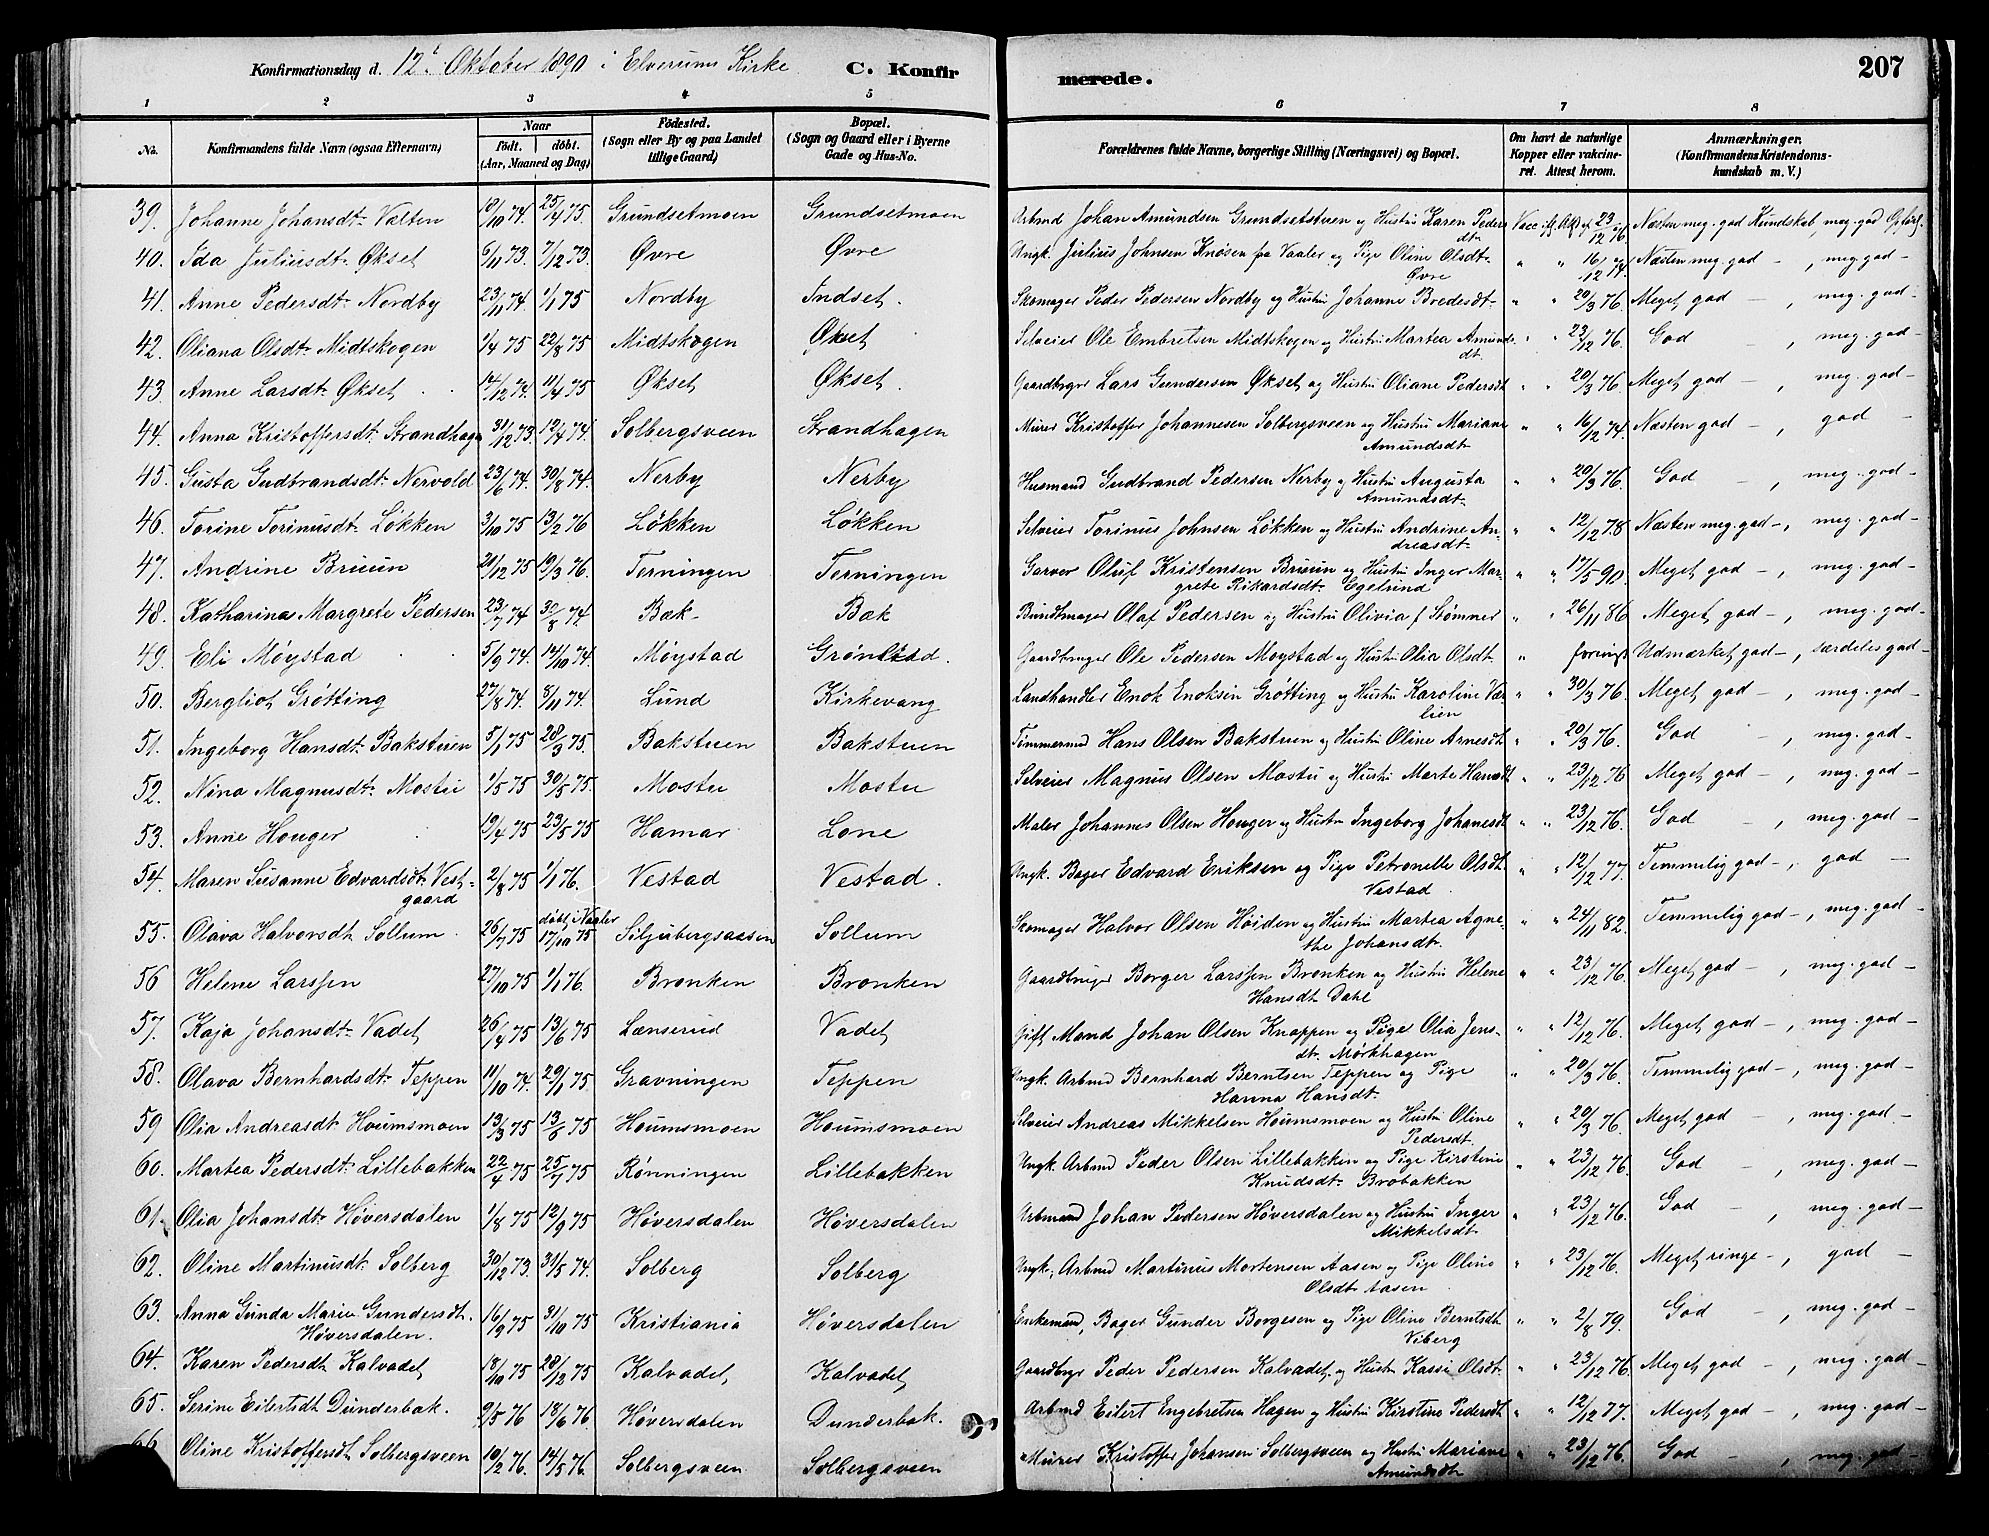 Konfirmationsdag d. 12t Oktober 1890 i Elverums Kirke C. Konfirmerede. 207
1 2 3 4 5 6 7 8
No. Konfirmandens fulde Navn (ogsaa Efternavn) Naar Født. døbt. (Aar, Maaned og Dag) Fødested. (Sogn eller By og paa Landet tillige Gaard) Bopæl. (Sogn og Gaard eller i Byerne Gade og Hus-No. Forældrenes fulde Navne, borgerlige Stilling (Næringsvei) og Bopæl. Om havt de naturlige Kopper eller vakcineret. Attest herom. Anmærkninger. (Konfirmandens Kristendomskundskab m. V.)
39. Johanne Johansdt. Valten 18/10 74. 25/4 75. Grundsetmoen Grundsetmoen Arbmd Johan Amundsen Grundsetstuen og Hustru Karen Pedersdt. Vacc. 23/12 76. Næsten meg. god Kundskab meg. god
40. Ida Juliusdt. Økset 6/11 73. 7/12 73. Øvre Øvre Ungk. Julius Johnsen Knøsen fra Vaaler og Pige Oline Olsdt. Øvre " " 16/12 74. Næsten meg. god – , meg. god –
41. Anne Pedersdt. Nordby 23/11 74. 1/1 75 Nordby Indset. Skomager Peder Pedersen Nordby og Hustru Johanne Bredesdt. " " 20/3 76. Meget god – , meg. god –
42. Oliana Olsdt. Midtskogen 1/4 75 22/8 75 Midtskogen Økset Selveier Ole Embretsen Midtskogen og Hustru Martea Amundsdt. " " 23/12 76. God – , meg. god –
43. Anne Larsdt. Økset 14/12 74. 11/4 75 Økset Økset. Gaardbryger Lars Gundersen Økset og Hustru Oliane Pedersdt. " " 20/3 76. Meget god – , meg. god –
44. Anna Kristoffersdt. Strandhagen 31/12 73. 12/4 74. Solbergsveen Strandhagen Murer Kristoffer Johannesen Solbergsveen og Hustru Mariane Amundsdt. " " 16/12 74. Næsten god – , god –
45. Gusta Gudbrandsdt. Nervold 23/6 74. 30/8 74. Nerby Nerby Husmand Gudbrand Pedersen Nerby og Hustru Augusta Amundsdt. " " 20/3 76. God – , meg. god –
46. Torine Torinusdt. Løkken 3/10 75 13/2 76 Løkken Løkken Selveier Torinus Johnsen Løkken og Hustru Andrine Andreasdt. " " 12/12 78 Næsten meg. god –, meg. god –
47. Andrine Bruun 21/12 75 19/3 76. Terningen Terningen Garver Oluf Kristensen Bruun og Hustru Inger Margrete Rikardsdt. Egelund " " 17/5 90. Meget god – , meg. god –
48. Katharina Margrete Pedersen 23/7 74 30/8 74. Bæk Bæk Bundtmager Olaf Pedersen og Hustru Olivia f Stømner " " 26/11 86 Meget god –, meg. god –
49. Eli Møystad 5/9 74. 14/10 74. Møystad Gaardbruger Ole Pedersen Moystad og Hustru Olia Olsdt. " forevist Udmærket god –, særdeles god –
50. Bergliot Grøtting 27/8 74. 8/11 74. Lund Kirkevang Landhandler Enok Enoksen Grøtting og Hustru Karoline Værlien " " 30/3 76. Meget god – , meg. god –
51. Ingeborg Hansdt. Bakstuen 5/1 75 28/3 75. Bakstuen Bakstuen Tømmermd Hans Olsen Bakstuen og Hustru Oline Arnesdt " " 20/3 76. God – , meg. god –
52. Nina Magnusdt. Mostu 1/5 75 30/5 75. Mostu Mostu Selveier Magnus Olsen Mostu og Hustru Marte Hansdt " " 23/12 76 Meget god – , meg. god –
53. Anne Houger 19/4 75 23/5 75 Hamar Lone Maler Johannes Olsen Houger og Hustru Ingeborg Johanesdt " " 23/12 76. God – , meg. god –
54. Maren Susanne Edvardsdt. Vestgaard 2/8 75 1/1 76. Vestad Vestad. Ungk. Bager Edvard Eriksen og Pige Petronelle Olsdt. Vestad. " " 12/12 77. Temmelig god –, god –
55. Olava Halvorsdt. Sollum. 26/7 75 døbt i Vaaler 17/10 75 Siljubergsaasen Sollum Skomager Halvor Olsen Høiden og Hustru Martea Agnethe Johansdt. " " 24/11 82. Temmelig god –, meg. god –
56 Helene Larssen 27/10 75 1/1 76. Bronken Bronken Gaardbruger Borger Larssen Bronken og Hustru Helene Hansdt Dahl " " 23/12 76. Meget god – , meg. god –
57. Kaja Johansdt. Vadet 26/4 75 13/6 75 Lænserud Vadet Gift Mand Johan Olsen Knappen og Pige Olia Jensdt. Mørkhagen " " 12/12 76. Meget god –, meg. god –
58. Olava Bernhardsdt. Teppen 11/10 74. 29/1 75 Gravningen Teppen Ungk. Arbmd Bernhard Berntsen Teppen og Pige Hanna Hansdt. " " 20/3 76. Temmelig god –, meg. god –
59 Olia Andreasdt Houmsmoen 13/3 75 13/6 75 Houmsmoen Houmsmoen Selveier Andreas Mikkelsen Houmsmoen og Hustru Oline Pedersdt. " " 20/3 76. Meget god – , meg. god –
60. Martea Pedersdt. Lillebakken 22/4 75 25/7 75 Rønningen Lillebakken Ungk. Arbmd Peder Olsen Lillebakken og Pige Kirstine Knudsdt. Brobakken " " 23/12 76. God – , meg. god –
61. Olia Johansdt. Høversdalen 1/8 75 12/9 75 Høversdalen Høversdalen Arbmand Johan Pedersen Høversdalen og Hustru Inger Mikkelsdt. " " 23/12 76. God – , meg. god –
62. Oline Martinusdt. Solberg 30/12 73. 31/5 74. Solberg Solberg Ungk. Arbmd Martinus Mortensen Aasen og Pige Oline Olsdt. Aasen. " " 23/12 76. Meget ringe –, god –
63. Anna Gunda Marie Gundersdt. Høversdalen. 16/9 75 31/10 75 Kristiania Høversdalen Enkemand, Bager Gunder Borgesen og Pige Oline Berntsdt. Viberg " " 2/8 79. God – , meg. god –
64. Karen Pedersdt. Kalvadet 18/10 75 28/12 75 Kalvadet Kalvadet Gaardbryger Peder Pedersen Kalvadet og Hustru Kassi Olsdt. " " 23/12 76. Meget god –, meg. god –
65. Serine Eilertsdt Dunderbæk. 9/5 76 18/6 76. Høversdalen Dunderbak. Arbmd Eilert Engebretsen Hagen og Hustru Kirstine Pedersdt " " 12/12 77. Meget god –, meg. god –
66. Oline Kristoffersdt Solbergsveen 10/2 76. 14/5 76. Solbergsveen Solbergsveen Murer Kristoffer Johansen Solbergsveen og Hustru Mariane Amundsdt " " 23/12 76. God – , meg. god –